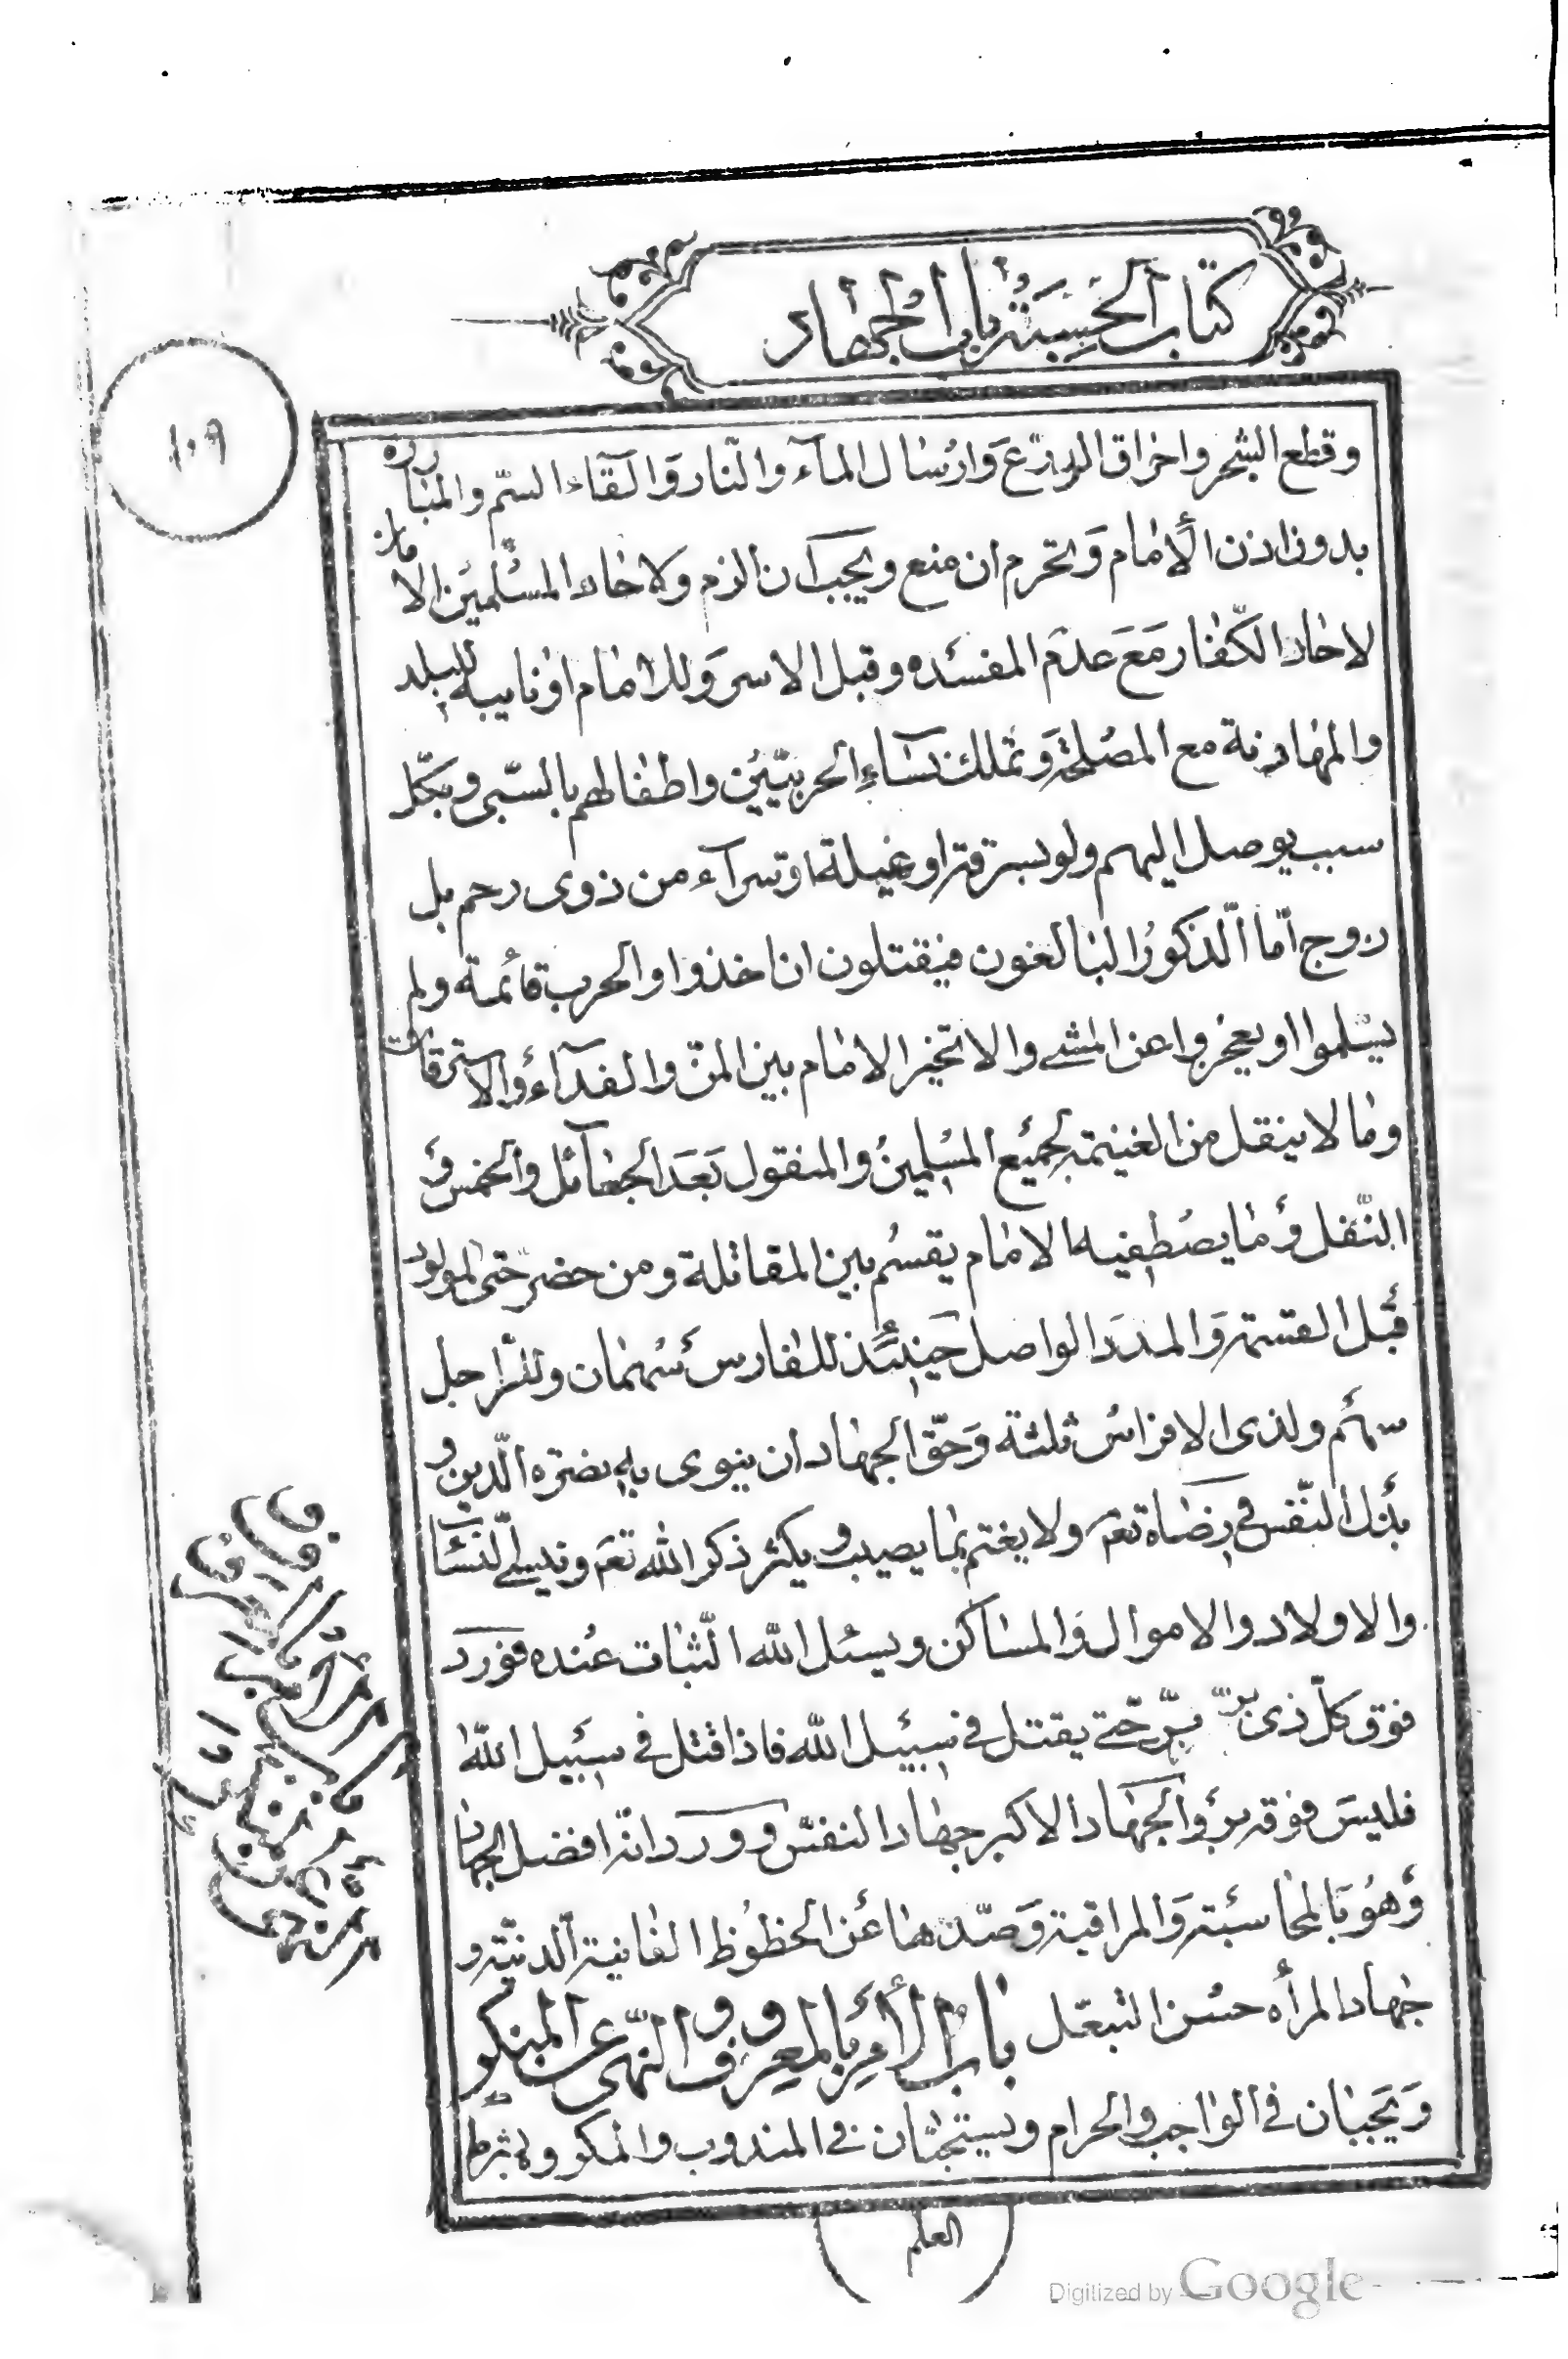 كتاب الحسبة باب الجهاد
١٠٩
وقطع الشجر واحراق الزرع وارسال الماء والنار والقاء السم والمبارزه
بدون اذن الامام وتحرم ان منع ويجب ان الزم ولاحاد المسلمين الامان
لاحاد الكفار مع عدم المفسده وقبل الاسر وللامام او نايبه للبلد
والمهادنة مع المصلحة وتملك نساء الحربيين واطفالهم بالسبى وبكل
سبب يوصل اليهم ولو بسرقة او غيلة او شراء من ذوى رحم بل
زوج اما الذكور البالغون فيقتلون ان اخذوا والحرب قائمة ولم
يسلموا او يعجزوا عن المشى والا تخير الامام بين المن والفداء والاسترقاق
وما لا ينقل من الغنيمة لجميع المسلمين والمنقول بعد الجعائل والخمس و
النفل وما يصطفيه الامام يقسم بين المقاتلة ومن حضر حتى المولود
قبل القسمة والمدد الواصل حينئذ للفارس سهمان وللراجل
سهم ولذى الافراس ثلثة وحق الجهاد ان ينوى به نصرة الدين و
بذل النفس فى رضاة تعم ولا يغتم بما يصيب ويكثر ذكر الله تعم وتيسلى النساء
والاولاد والاموال والمساكن ويسئل الله الثبات عنده فورد
فوق كل ذى بر بر حتى يقتل فى سبيل الله فاذا قتل فى سبيل الله
فليس فوقه بر والجهاد الاكبر جهاد النفس وورد انه افضل الجهاد
وهو بالمحاسبة والمراقبة وصدها عن الحظوظ الفانية الدنية و
جهاد المراه حسن التبعل باب الامر بالمعروف والنهى عن المنكر
ويجبان فى الواجب والحرام ويستحبان فى المندوب والمكروه بشرط
العلم
Digitized by Google